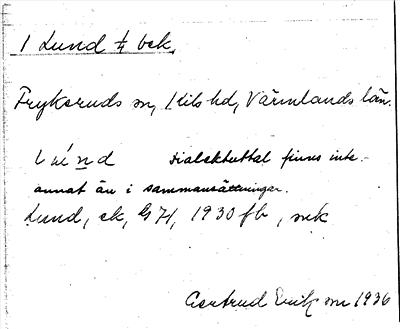 1 Lund ¼ bek.
Frykeruds sn, Kils hd, Värmlands län.
dialektuttal finns inte
annat än i sammansättningar.
Lund, ek, GH, 1930 fb, mk
Gertrud 1936